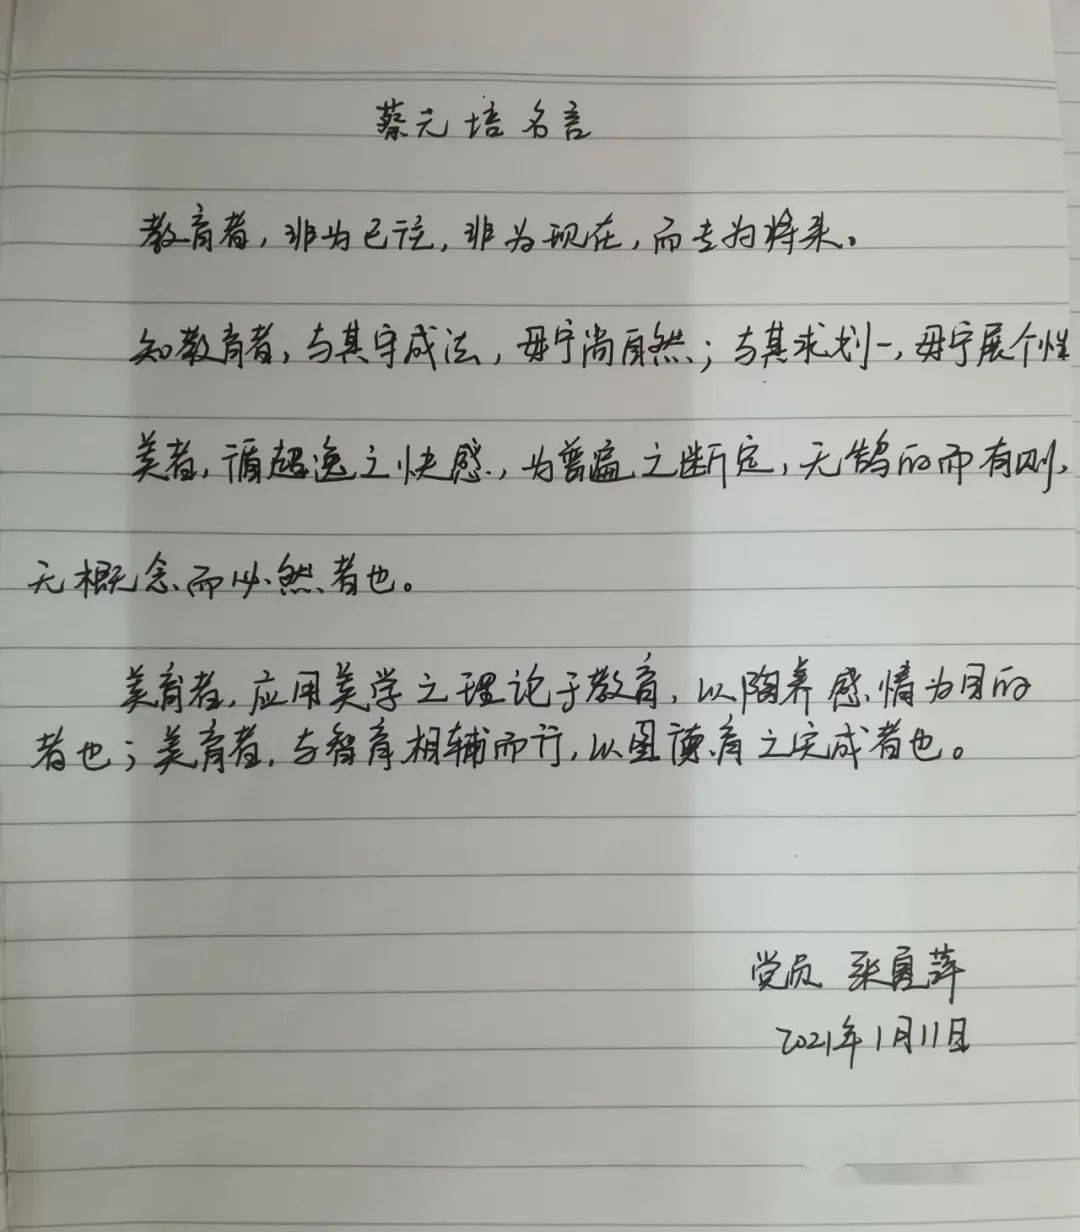 蔡元培名言
教育者，非为已往，非为现在，而专为将来。
知教育者，与其守成法，毋宁尚自然；与其求划一，毋宁展个性
美者，循超逸之快感，为普遍之断定，无鹄的而有则，
无概念而必然者也。
美育者，应用美学之理论于教育，以陶养感情为目的
者也；美育者，与智育相辅而行，以图德育之完成者也。
党员 张夏萍
2021年1月11日